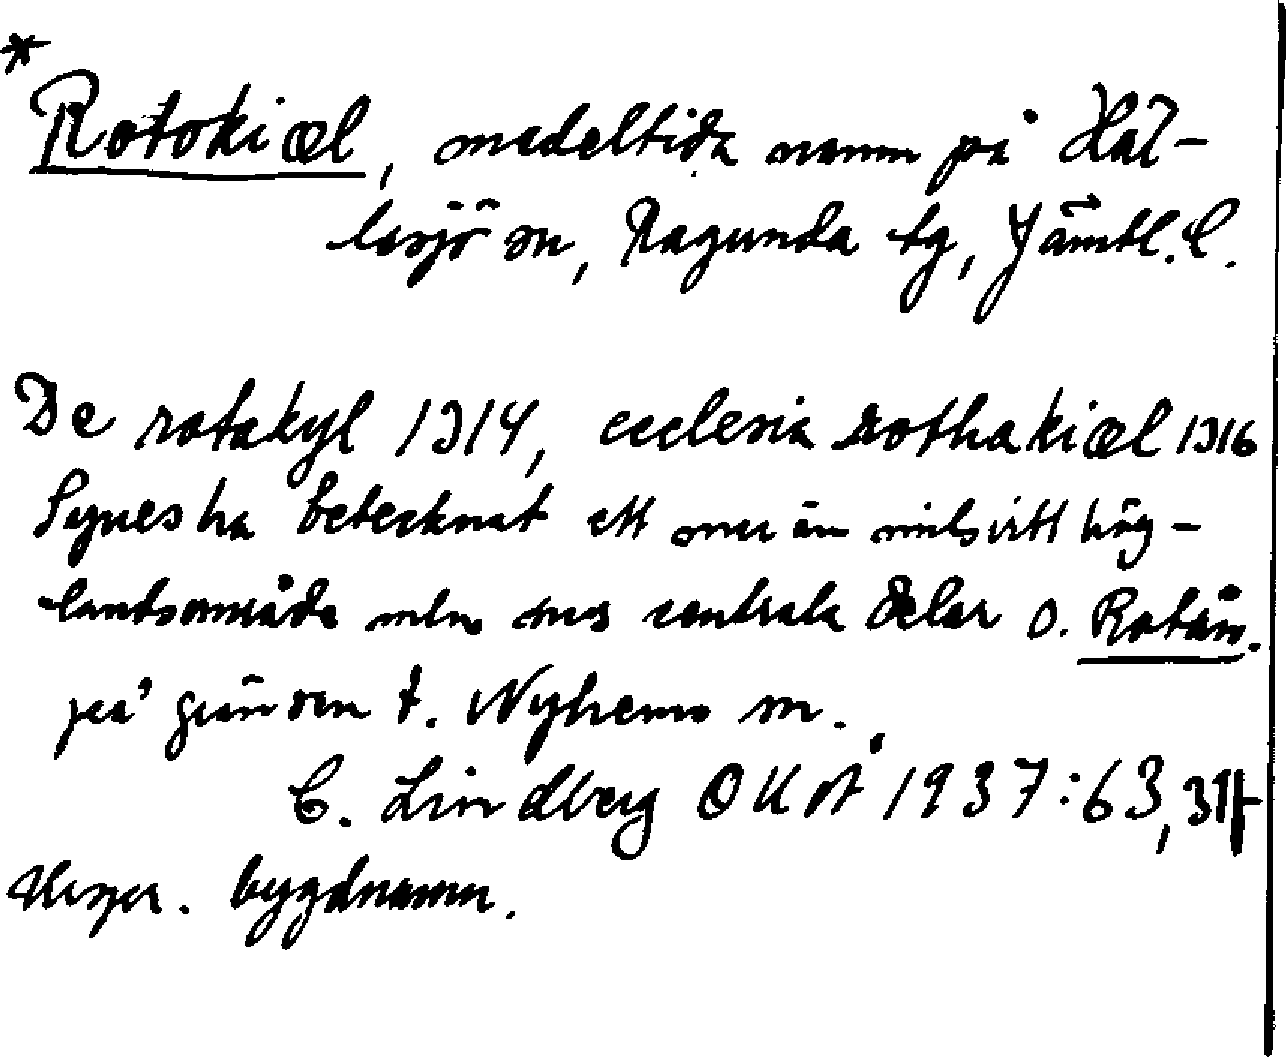 * Rotokiæl, medeltida namn på Häl-
lesjö sn, Ragunda tg, Jämtl. l.
De rotakyl 1314, ecclesia rothakiæl 1316
Synes ha betecknat ett mer än milsvitt hög-
landsområde mln dess centrala delar o. Rotån.
på gränsen t. Nyhems sn.
C. Lindberg OUÅ 1937:63, 31f
Urspr. bygdnamn.